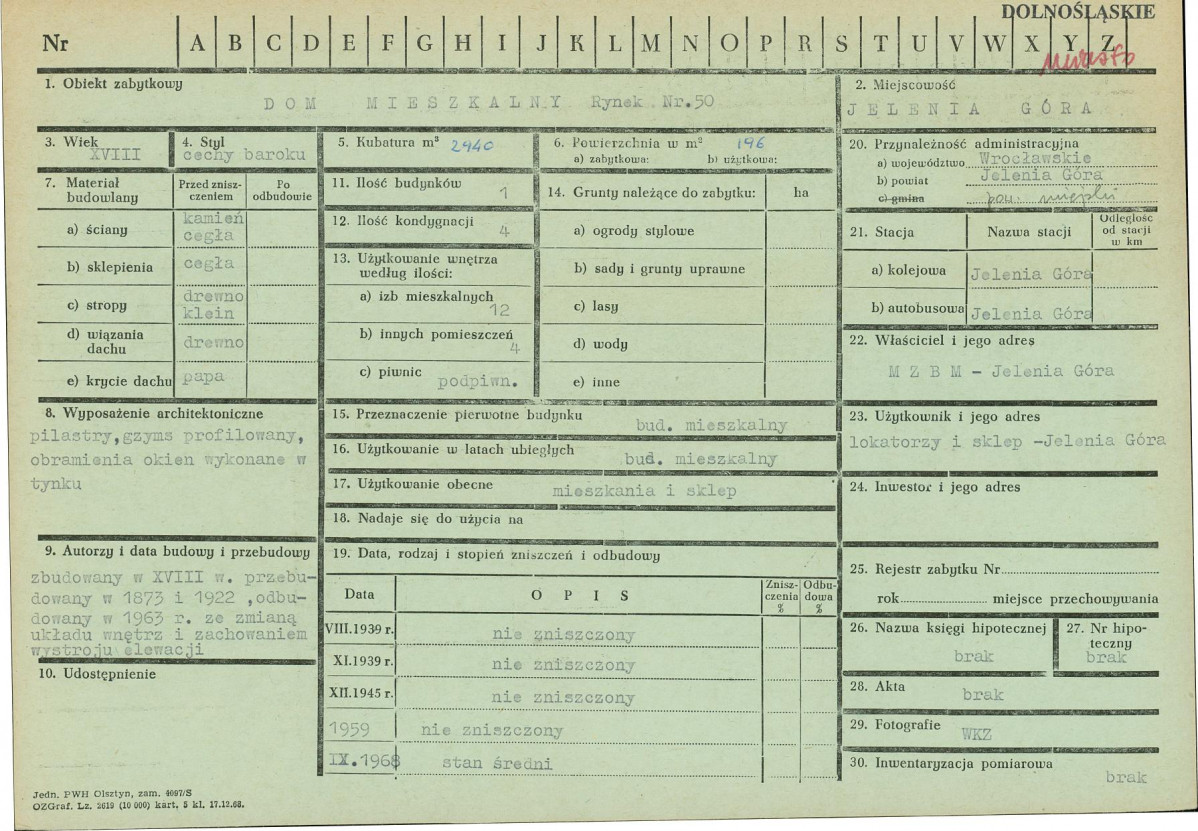 DOLNOŚLĄSKIE
Nr A B C D E F G H I J K L M N O P R S T U V W X Y Z
miasto
1. Obiekt zabytkowy
DOM MIESZKALNY Rynek Nr.50
2. Miejscowość
JELENIA GÓRA
3. Wiek
XVIII
4. Styl
cechy baroku
5. Kubatura m³ 2940
6. Powierzchnia w m² 196
a) zabytkowa: b) użytkowa:
7. Materiał budowlany
Przed zniszczeniem
Po odbudowie
a) ściany
kamień
cegła
b) sklepienia cegła
c) stropy
drewno
klein
d) wiązania dachu drewno
e) krycie dachu papa
8. Wyposażenie architektoniczne
pilastry,gzyms profilowany,
obramienia okien wykonane w
tynku
9. Autorzy i data budowy i przebudowy
zbudowany w XVIII w. przebu-
dowany w 1873 i 1922 ,odbu-
dowany w 1963 r. ze zmianą
układu wnętrz i zachowaniem
wystroju elewacji
10. Udostępnienie
11. Ilość budynków 1
12. Ilość kondygnacji 4
13. Użytkowanie wnętrza
według ilości:
a) izb mieszkalnych
12
b) innych pomieszczeń
4
c) piwnic podpiwn.
14. Grunty należące do zabytku: ha
a) ogrody stylowe
b) sady i grunty uprawne
c) lasy
d) wody
e) inne
15. Przeznaczenie pierwotne budynku
bud. mieszkalny
16. Użytkowanie w latach ubiegłych
bud. mieszkalny
17. Użytkowanie obecne mieszkania i sklep
18. Nadaje się do użycia na
19. Data, rodzaj i stopień zniszczeń i odbudowy
Data OPIS Zniszczenia % Odbudowa %
VIII.1939 r. nie zniszczony
XI.1939 r. nie zniszczony
XII.1945 r. nie zniszczony
1959 nie zniszczony
IX.1968 stan średni
20. Przynależność administracyjna
a) województwo Wrocławskie
b) powiat Jelenia Góra
c) gmina pow. miejski
21. Stacja Nazwa stacji Odległość od stacji w km
a) kolejowa Jelenia Góra
b) autobusowa Jelenia Góra
22. Właściciel i jego adres
M Z B M - Jelenia Góra
23. Użytkownik i jego adres
lokatorzy i sklep -Jelenia Góra
24. Inwestor i jego adres
25. Rejestr zabytku Nr
rok miejsce przechowywania
26. Nazwa księgi hipotecznej
brak
27. Nr hipoteczny
brak
28. Akta brak
29. Fotografie WKZ
30. Inwentaryzacja pomiarowa
brak
Jedn. PWH Olsztyn, zam. 4097/S
OZGraf. Lz. 2619 (10 000) kart. 5 kl. 17.12.68.